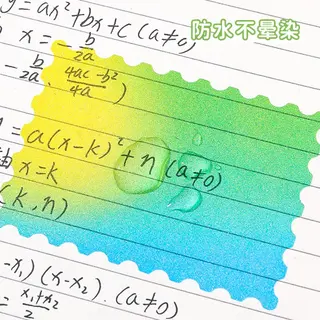 防水不晕染
y=ax²+bx+c (a≠0)
x=-b/2a
-b/2a, 4ac-b²/4a)
=a(x-k)²+n (a≠0)
轴 x=k
(k,n)
-x₁)(x-x₂). (a≠0)
=x₁+x₂/2